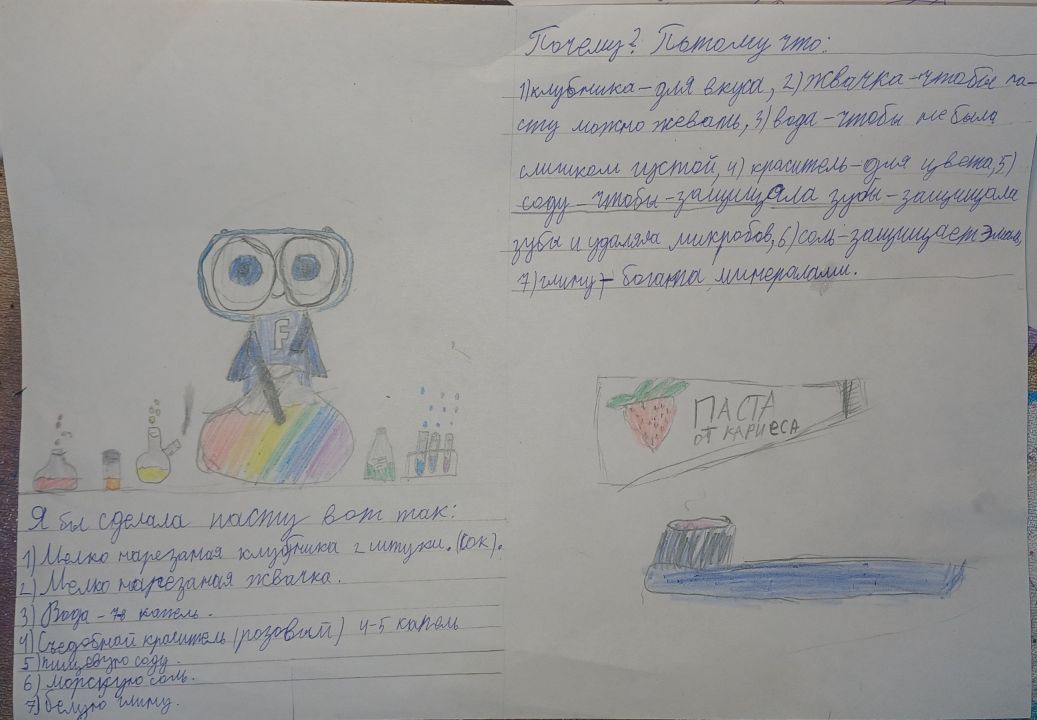 F
Я бы сделала пасту вот так:
1) Мелко нарезаная клубника 2 штуки. (сок).
2) Мелко нарезаная жвачка.
3) Вода - капель.
4) Съедобный краситель (розовый) 4-5 капель
5) пищевую соду.
6) морскую соль.
7) белую глину.
Почему? Пьтому что:
1) клубника - для вкуса, 2) жвачка - чтобы па-
сту можно жевать, 3) вода - чтобы не была
слишком густой, 4) краситель - для цвета, 5)
соду - чтобы - защищала зубы - защищала
зубы и удаляла микробов, 6) соль - защищает эмаль,
7) глину - богата минералами.
ПАСТА
ОТ КАРИЕСА